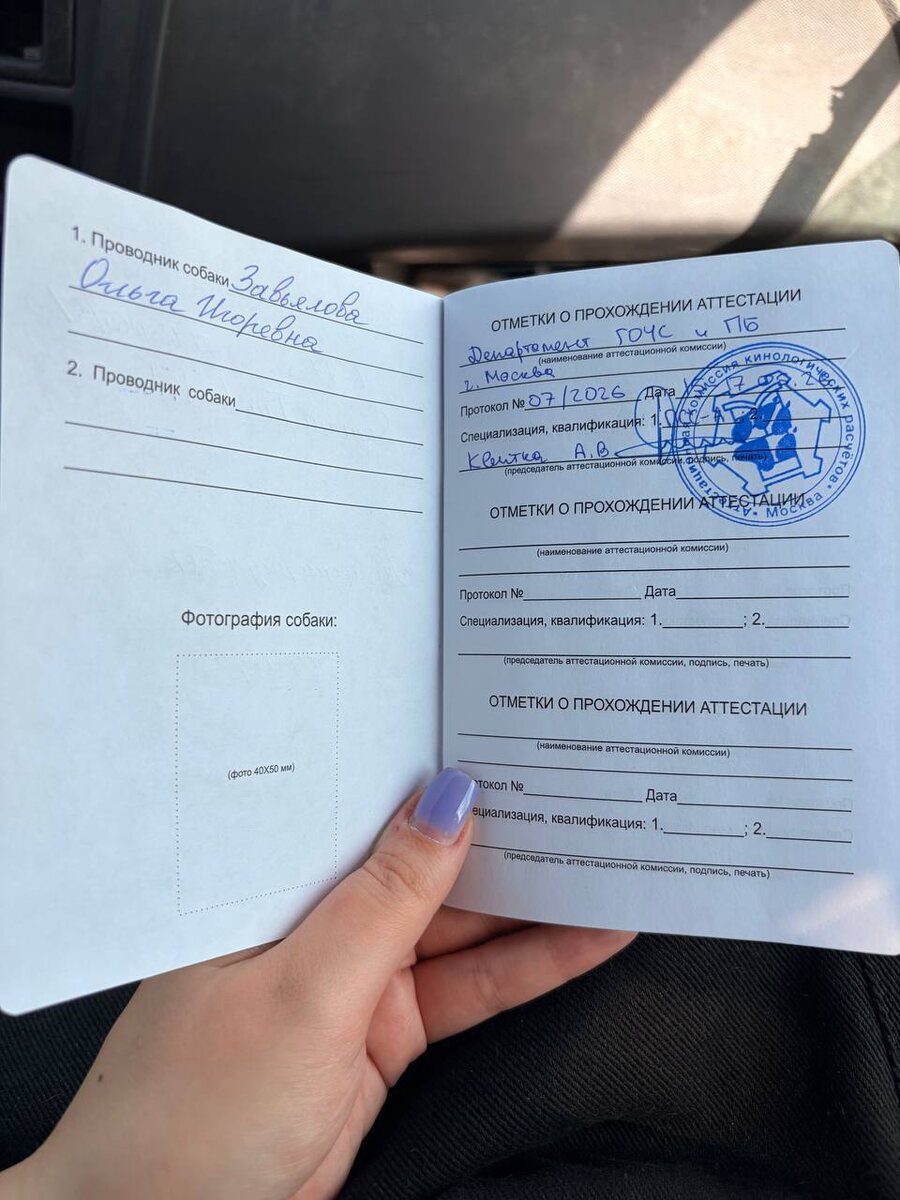 1. Проводник собаки Завьялова
Ольга Игоревна
2. Проводник собаки
Фотография собаки:
(фото 40X50 мм)
ОТМЕТКИ О ПРОХОЖДЕНИИ АТТЕСТАЦИИ
Департамент ГОЧС и ПБ
(наименование аттестационной комиссии)
г. Москва
Протокол № 07/2026 Дата 17
Специализация, квалификация: 1. ; 2.
Квитка А.В
(председатель аттестационной комиссии, подпись, печать)
Аттестационная комиссия кинологических расчётов • Москва •
ОТМЕТКИ О ПРОХОЖДЕНИИ АТТЕСТАЦИИ
(наименование аттестационной комиссии)
Протокол № Дата
Специализация, квалификация: 1. ; 2.
(председатель аттестационной комиссии, подпись, печать)
ОТМЕТКИ О ПРОХОЖДЕНИИ АТТЕСТАЦИИ
(наименование аттестационной комиссии)
токол № Дата
ециализация, квалификация: 1. ; 2.
(председатель аттестационной комиссии, подпись, печать)